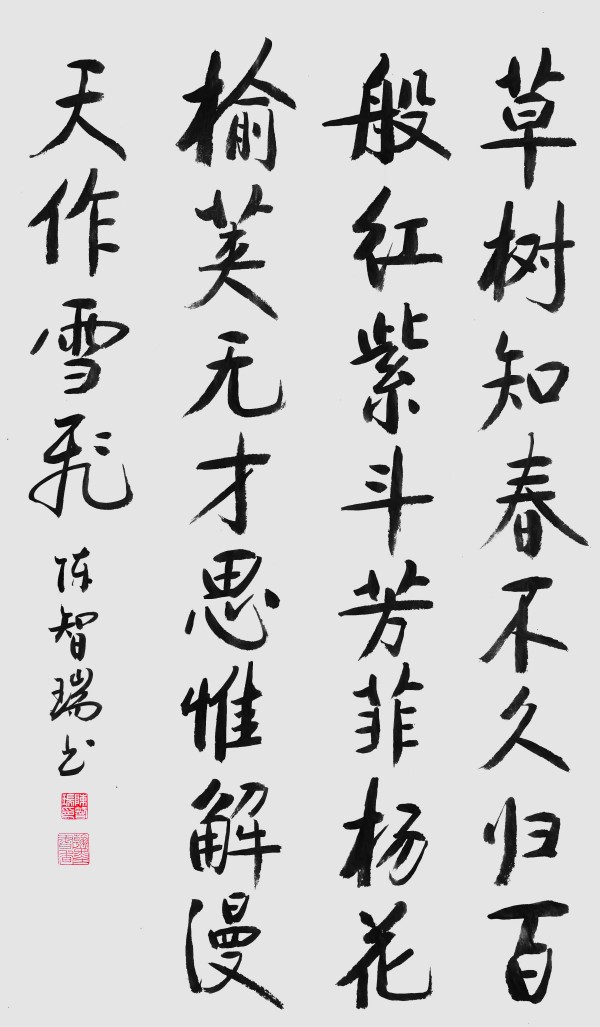 草树知春不久归百
般红紫斗芳菲杨花
榆荚无才思惟解漫
天作雪飞
陈智瑞书